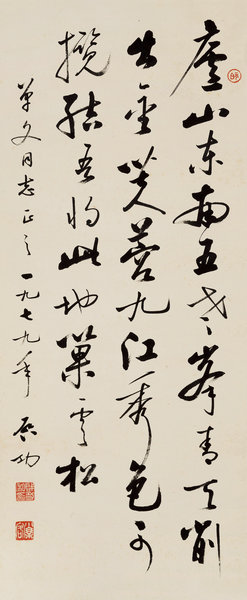 廬山东南五老峯青天削
出金芙蓉九江秀色可
攬結吾将此地巢雲松
文同志正之 一九七九年 启功